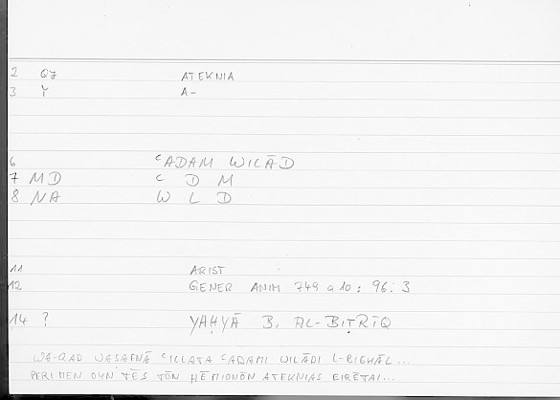 2 QJ ATEKNIA
3 Ÿ A-
6 ʿADAM WILĀD
7 MD ʿ D M
8 NA W L D
11 ARIST
12 GENER ANIM 749 a 10 : 96 : 3
14 ? YAḤYĀ B. AL-BIṬRĪQ
WA-QAD WAṢAFNĀ ʿILLATA ʿADAMI WILĀDI L-BIGHĀL...
PERI MEN OYN TĒS TŌN HĒMIONŌN ATEKNIAS EIRĒTAI...